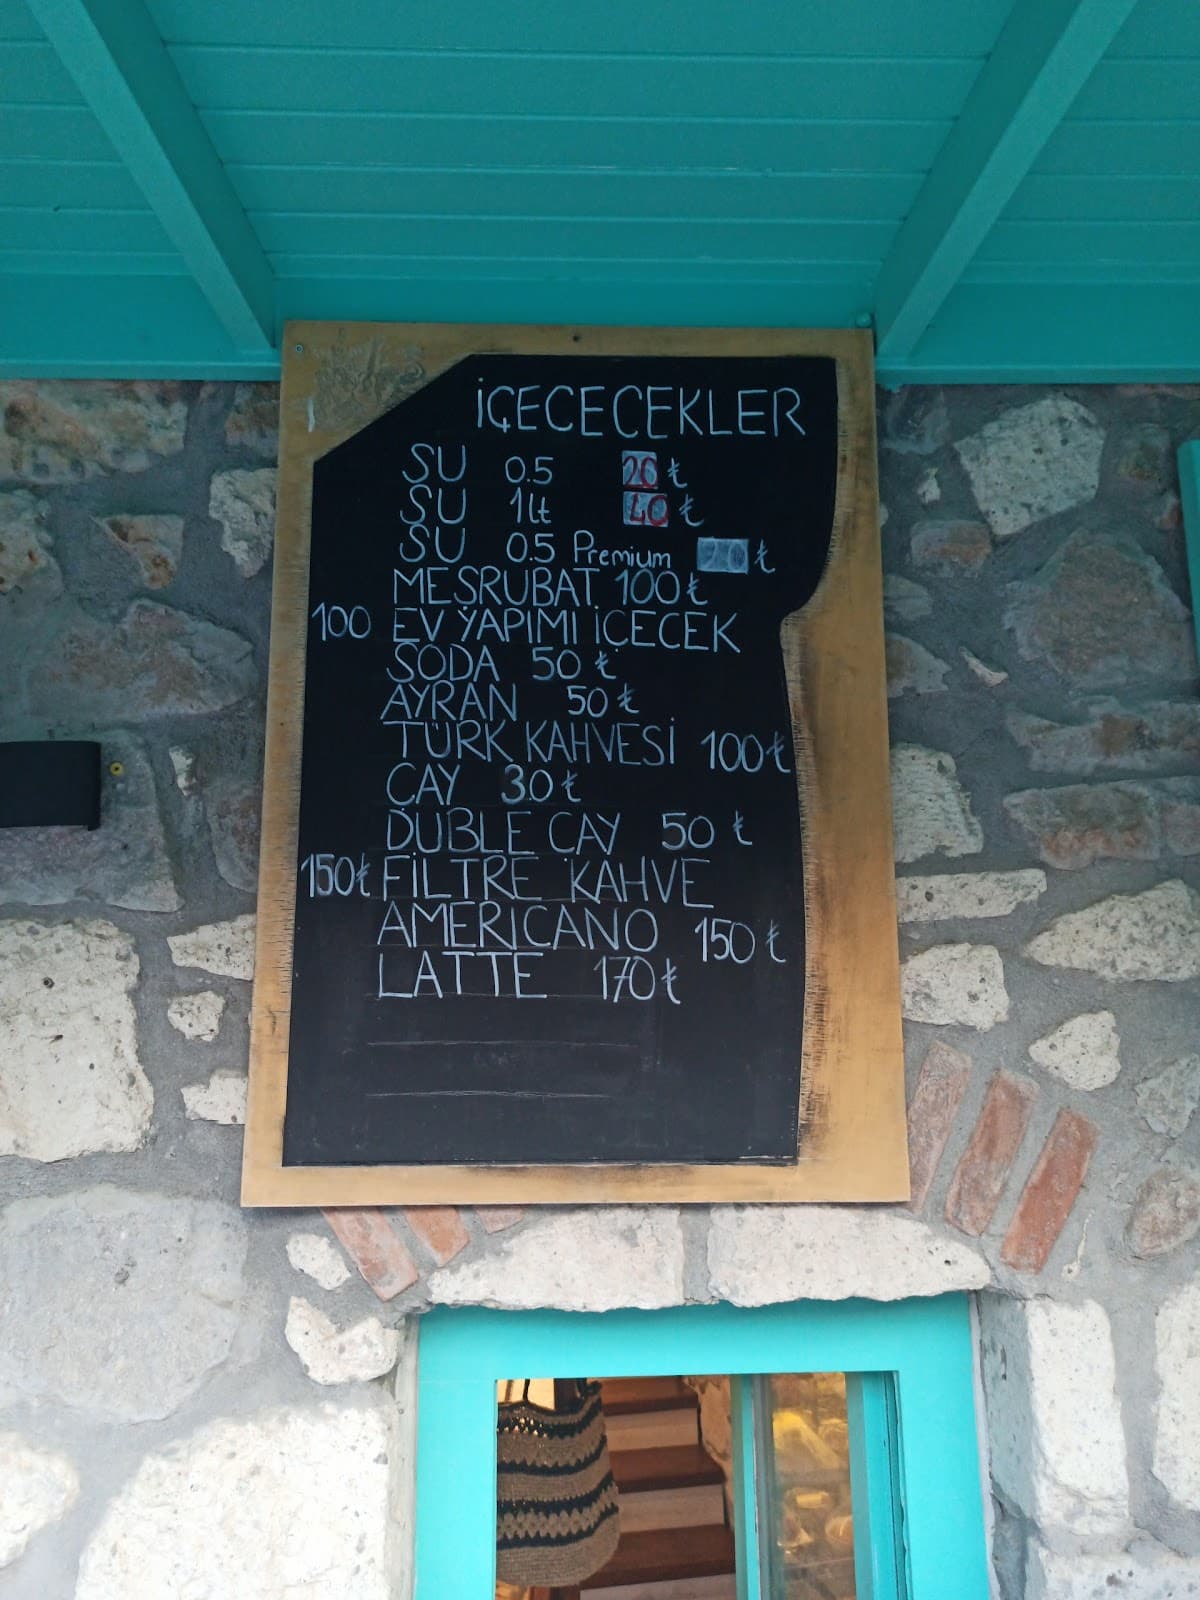 İÇECECEKLER
SU 0.5 20 ₺
SU 1lt 40 ₺
SU 0.5 Premium ₺
MEŞRUBAT 100 ₺
100 EV YAPIMI İÇECEK
SODA 50 ₺
AYRAN 50 ₺
TÜRK KAHVESİ 100 ₺
ÇAY 30 ₺
DUBLE ÇAY 50 ₺
150 ₺ FİLTRE KAHVE
AMERICANO 150 ₺
LATTE 170 ₺